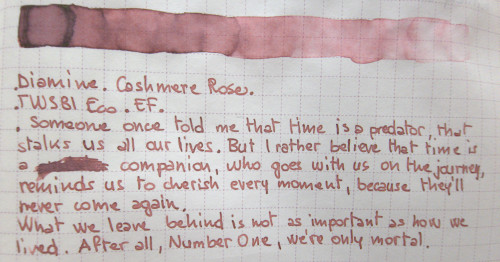 .Diamine. Cashmere Rose.
.TWSBI Eco. EF.
. Someone once told me that time is a predator, that
stalks us all our lives. But I rather believe that time is
a companion, who goes with us on the journey,
reminds us to cherish every moment, because they'll
never come again.
What we leave behind is not as important as how we
lived. After all, Number One, we're only mortal.